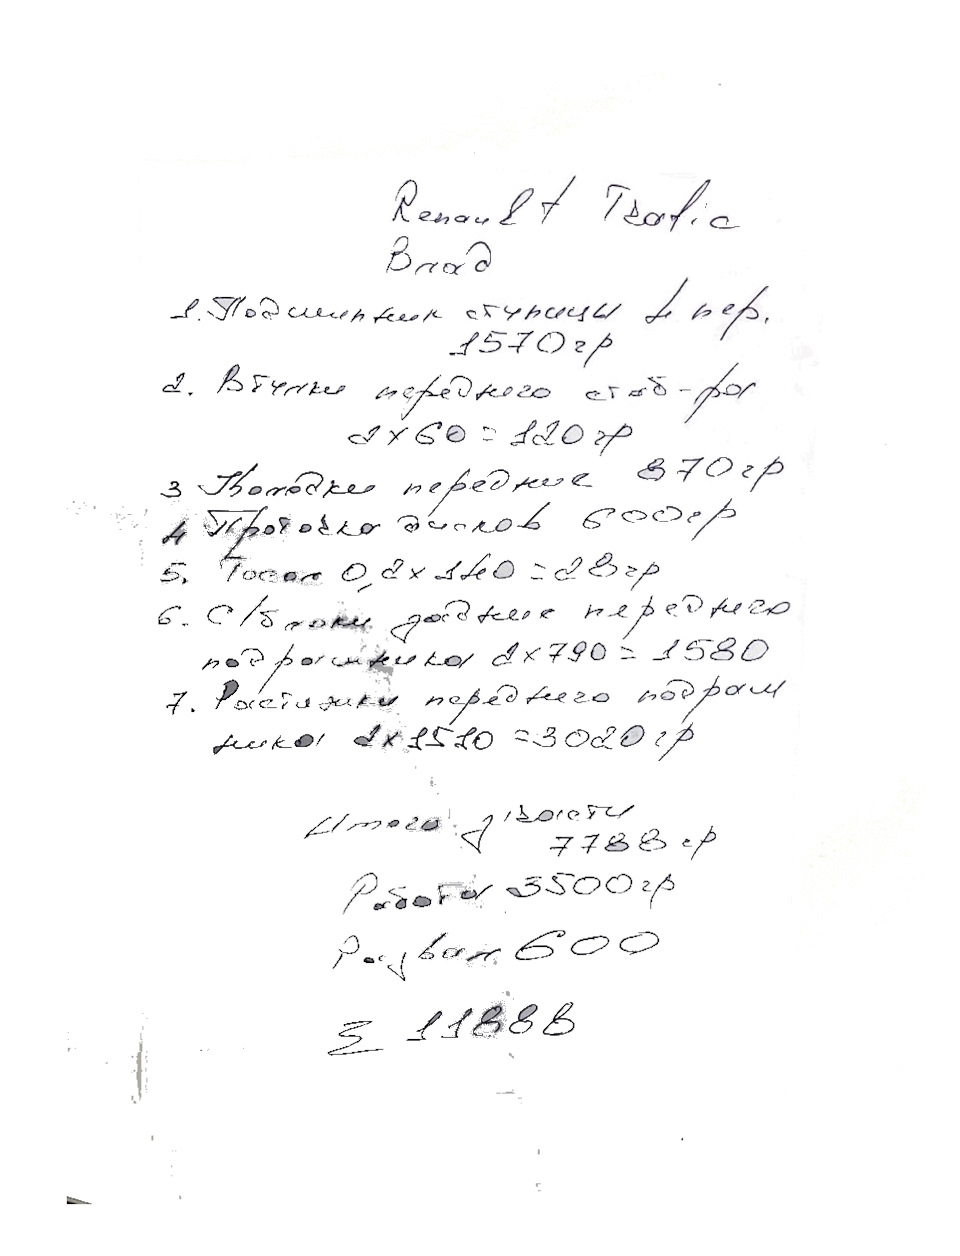 Renault Trafic
Влад
1. Подшипник ступицы L пер.
1570гр
2. Втулки переднего стаб-ра
2 x 60 = 120гр
3 Колодки передние 870гр
4 Проточка дисков 600гр
5. Тосол 0,2 x 140 = 28гр
6. С/блоки задние переднего
подрамника 2 x 790 = 1580
7. Растяжки переднего подрам
ника 2 x 1510 = 3020гр
Итого з/части
7788гр
Работа 3500гр
Развал 600
Σ 11888